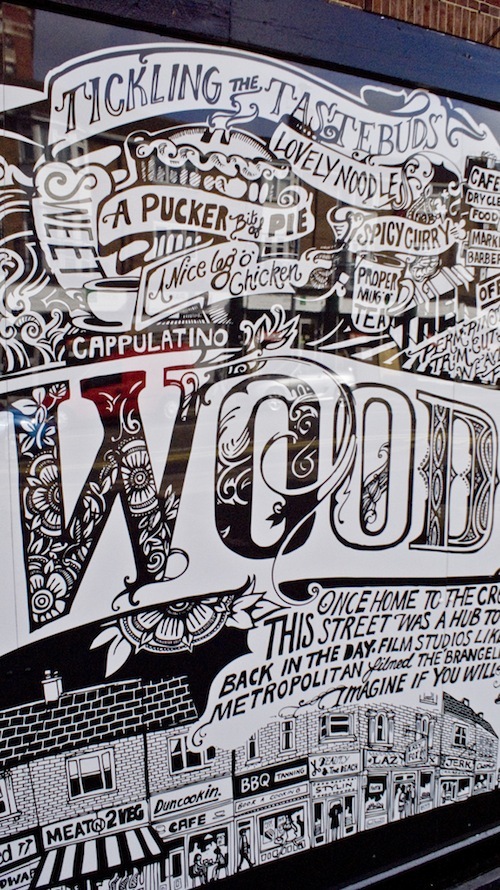 TICKLING THE TASTEBUDS
LOVELY NOODLE
SWEET
A PUCKER Bite of PIE
SPICY CURRY
A Nice leg o' Chicken
PROPER
MUG 'O'
TEA
CAFE
DRY CLE
FOOD
BARBER
CAPPULATINO
WOOD
ONCE HOME TO THE CR
THIS STREET WAS A HUB TO
BACK IN THE DAY. FILM STUDIOS LIN
METROPOLITAN filmed THE BRANGEL
IMAGINE IF YOU WILL
MEAT 2 VEG
Duncookin.
CAFE
BBQ TANNING
BEAUTY
& THE BEACH
STYLIN
LAZY
JERK